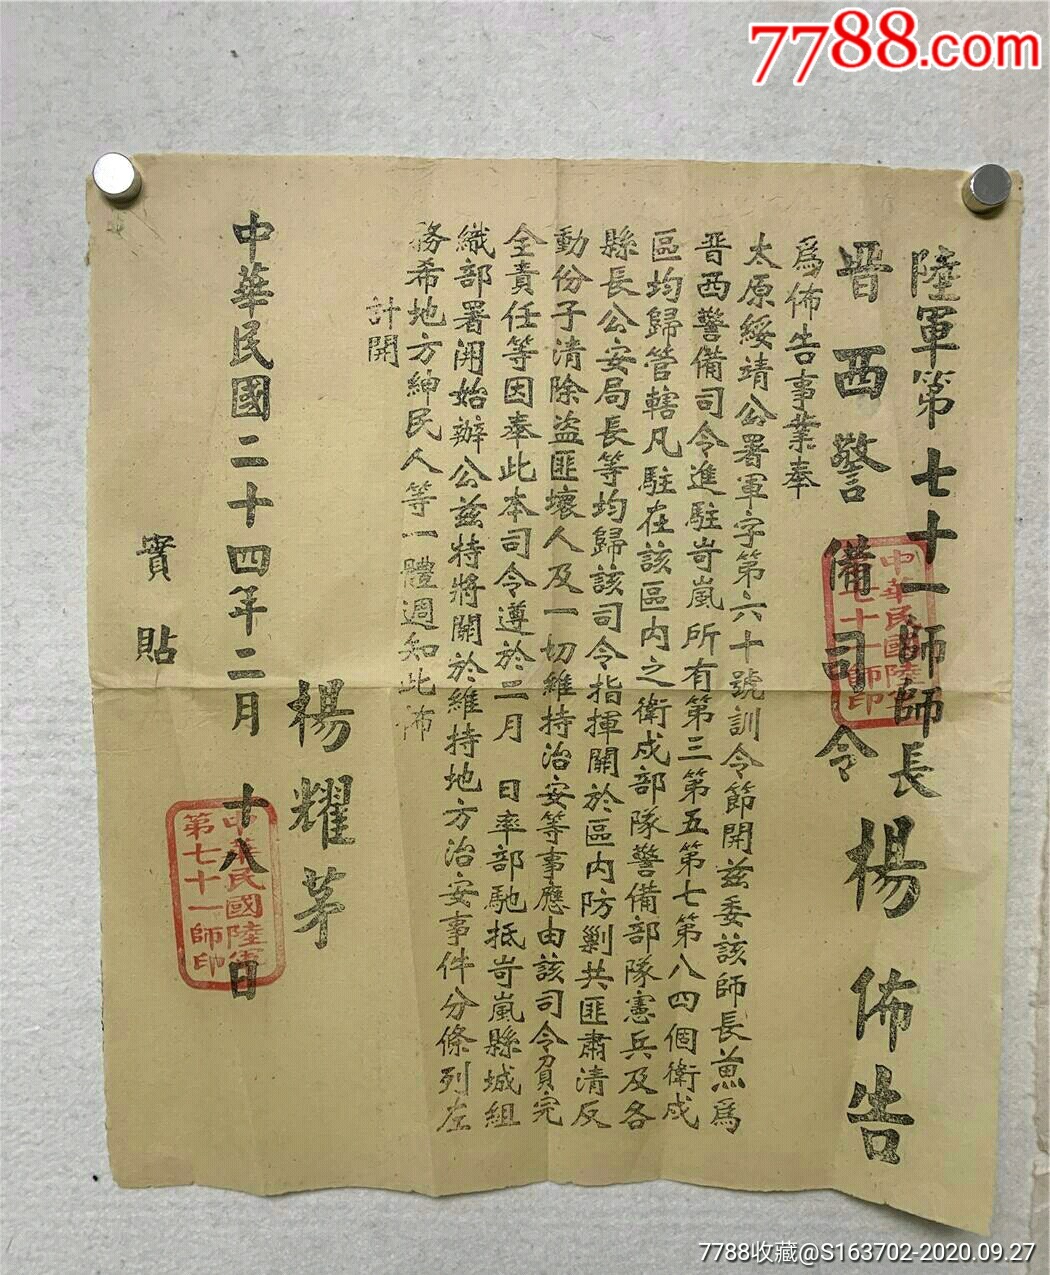 7788.com
陸軍第七十一師師長
晋西警備司令
楊佈告
為佈告事業奉
太原綏靖公署軍字第六十號訓令節開兹委該師長兼為
晋西警備司令進駐岢嵐所有第三第五第七第八四個衛戍
區均歸管轄凡駐在該區内之衛戍部隊警備部隊憲兵及各
縣長公安局長等均歸該司令指揮關於區内防剿共匪肅清反
動份子清除盜匪壞人及一切維持治安等事應由該司令負完
全責任等因奉此本司令遵於二月 日率部馳抵岢嵐縣城組
織部署開始辦公兹特將關於維持地方治安事件分條列左
務希地方紳民人等一體週知此佈
計開
楊耀芳
中華民國二十四年二月十八日
實貼
中華民國陸軍
第七十一師印
中華民國陸軍
第七十一師印
7788收藏@S163702-2020.09.27